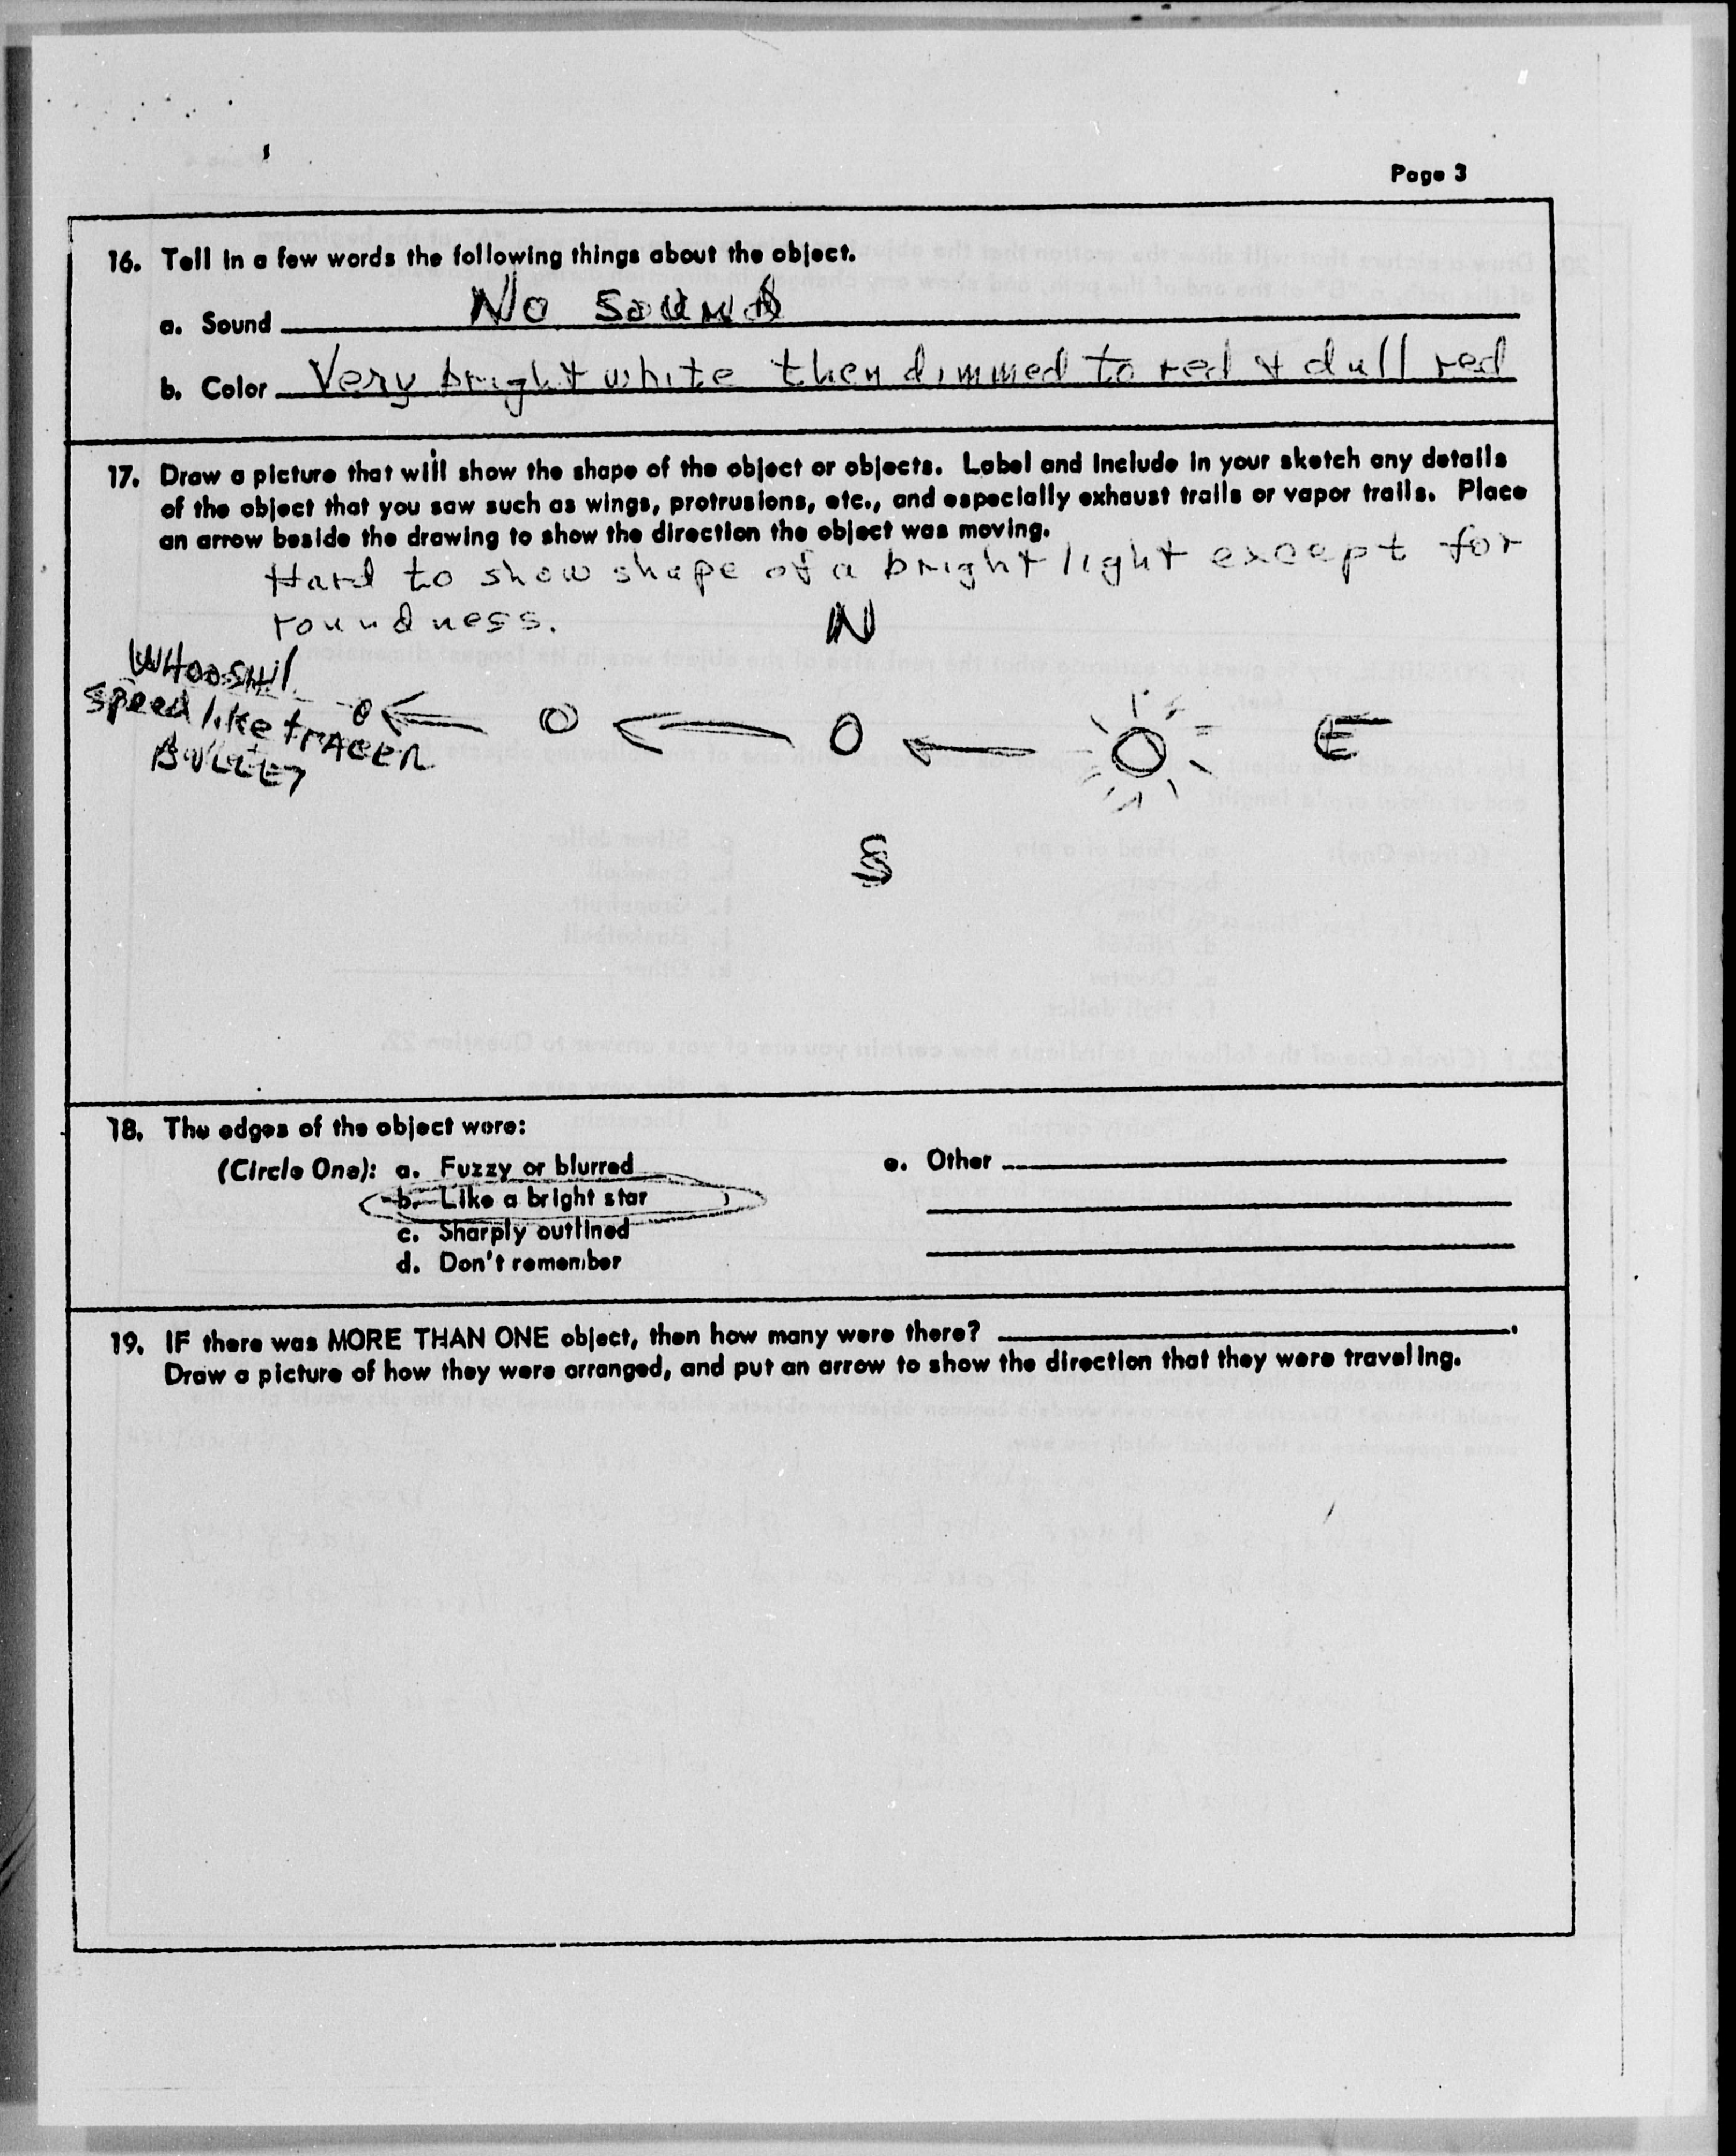 Page 3
16. Tell in a few words the following things about the object.
a. Sound No sound
b. Color Very bright white then dimmed to red & dull red
17. Draw a picture that will show the shape of the object or objects. Label and include in your sketch any details
of the object that you saw such as wings, protrusions, etc., and especially exhaust trails or vapor trails. Place
an arrow beside the drawing to show the direction the object was moving.
Hard to show shape of a bright light except for
roundness.
N
WHOOSH!
speed like TRACER
BULLET
E
S
18. The edges of the object were:
(Circle One): a. Fuzzy or blurred
b. Like a bright star
c. Sharply outlined
d. Don't remember
e. Other
19. IF there was MORE THAN ONE object, then how many were there?
Draw a picture of how they were arranged, and put an arrow to show the direction that they were traveling.